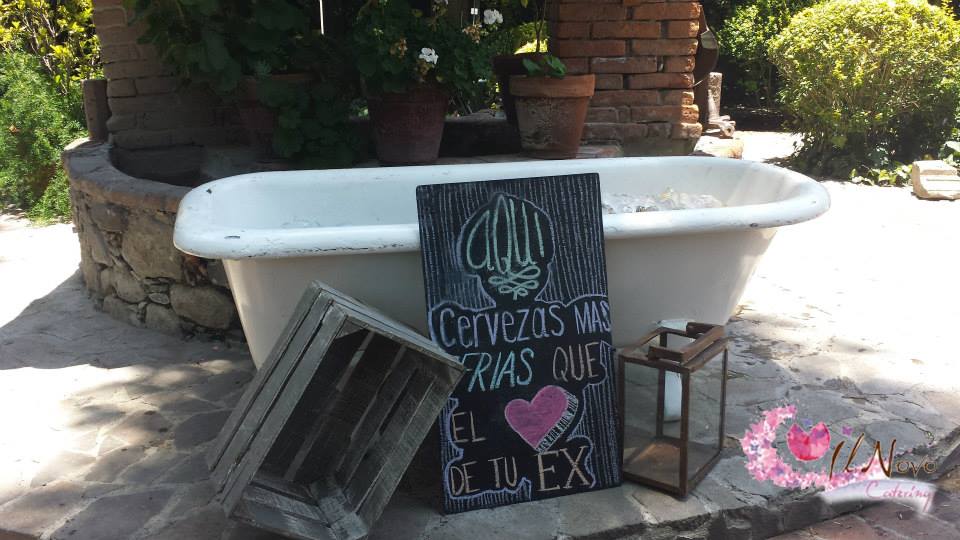 AQUI
Cervezas MAS
FRIAS QUE
EL
DE TU EX
Il Novo
Catering